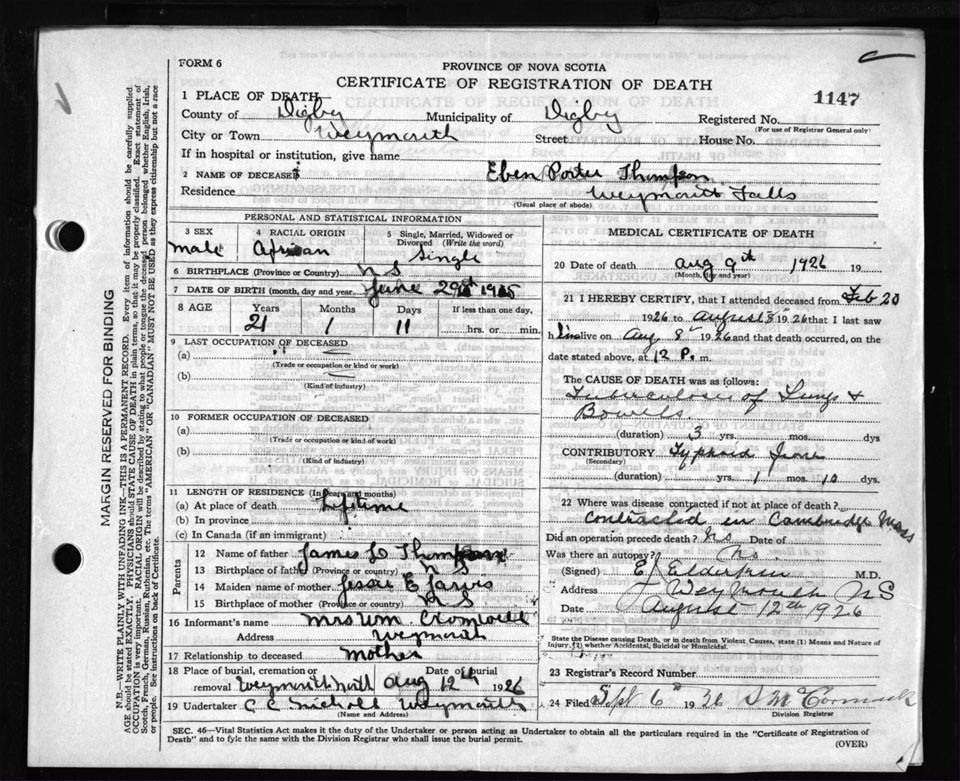 FORM 6
PROVINCE OF NOVA SCOTIA
CERTIFICATE OF REGISTRATION OF DEATH
1147
1 PLACE OF DEATH—
County of Digby Municipality of Digby Registered No.
(For use of Registrar General only)
City or Town Weymouth Street House No.
If in hospital or institution, give name
2 NAME OF DECEASED Eben Porter Thompson
Residence Weymouth Falls
(Usual place of abode)
PERSONAL AND STATISTICAL INFORMATION
3 SEX male
4 RACIAL ORIGIN African
5 Single, Married, Widowed or Divorced (Write the word) Single
6 BIRTHPLACE (Province or Country) N S
7 DATE OF BIRTH (month, day and year) June 29 1905
8 AGE Years 21 Months 1 Days 11 If less than one day, hrs. or min.
9 LAST OCCUPATION OF DECEASED
(a)
(Trade or occupation or kind or work)
(b)
(Kind of industry)
10 FORMER OCCUPATION OF DECEASED
(a)
(Trade or occupation or kind of work)
(b)
(Kind of Industry)
11 LENGTH OF RESIDENCE (In years and months)
(a) At place of death Lifetime
(b) In province
(c) In Canada (if an immigrant)
Parents
12 Name of father James L Thompson
13 Birthplace of father (Province or country) N S
14 Maiden name of mother Jessie E Jarvis
15 Birthplace of mother (Province or country) N S
16 Informant's name Mrs Wm Cromwell
Address Weymouth
17 Relationship to deceased Mother
18 Place of burial, cremation or removal Weymouth North Date of burial Aug 12th 1926
19 Undertaker C C Nicholl Weymouth
(Name and Address)
MEDICAL CERTIFICATE OF DEATH
20 Date of death Aug 9th 1926 19
(Month, day and year)
21 I HEREBY CERTIFY, that I attended deceased from Feb 20
1926 to August 8th 1926 that I last saw
him alive on Aug 8th 1926 and that death occurred, on the
date stated above, at 12 P. m.
The CAUSE OF DEATH was as follows:
Tuberculosis of Lungs &
Bowels
(duration) 3 yrs. mos. dys
CONTRIBUTORY Typhoid
(Secondary)
(duration) yrs. 1 mos. 10 dys.
22 Where was disease contracted if not at place of death?
Contracted in Cambridge Mass
Did an operation precede death? No Date of
Was there an autopsy? No
(Signed) E J Elderkin M.D.
Address Weymouth N S
Date August 12th 1926
State the Disease causing Death, or in death from Violent Causes, state (1) Means and Nature of
Injury, (2) whether Accidental, Suicidal or Homicidal.
23 Registrar's Record Number
24 Filed Sept 6th 1926 S McCormack
Division Registrar
SEC. 46—Vital Statistics Act makes it the duty of the Undertaker or person acting as Undertaker to obtain all the particulars required in the "Certificate of Registration of
Death" and to fyle the same with the Division Registrar who shall issue the burial permit.
(OVER)
MARGIN RESERVED FOR BINDING
N.B.—WRITE PLAINLY WITH UNFADING INK—THIS IS A PERMANENT RECORD. Every item of information should be carefully supplied.
AGE should be stated EXACTLY. PHYSICIANS should STATE CAUSE OF DEATH in plain terms, so that it may be properly classified. Exact statement of
OCCUPATION is very important. RACIAL ORIGIN will be described by stating to what people or tongue the deceased person belonged whether English, Irish,
Scotch, French, German, Russian, Ruthenian, etc. The terms "AMERICAN" OR "CANADIAN" MUST NOT BE USED as they express citizenship but not a race
or people. See instructions on back of Certificate.